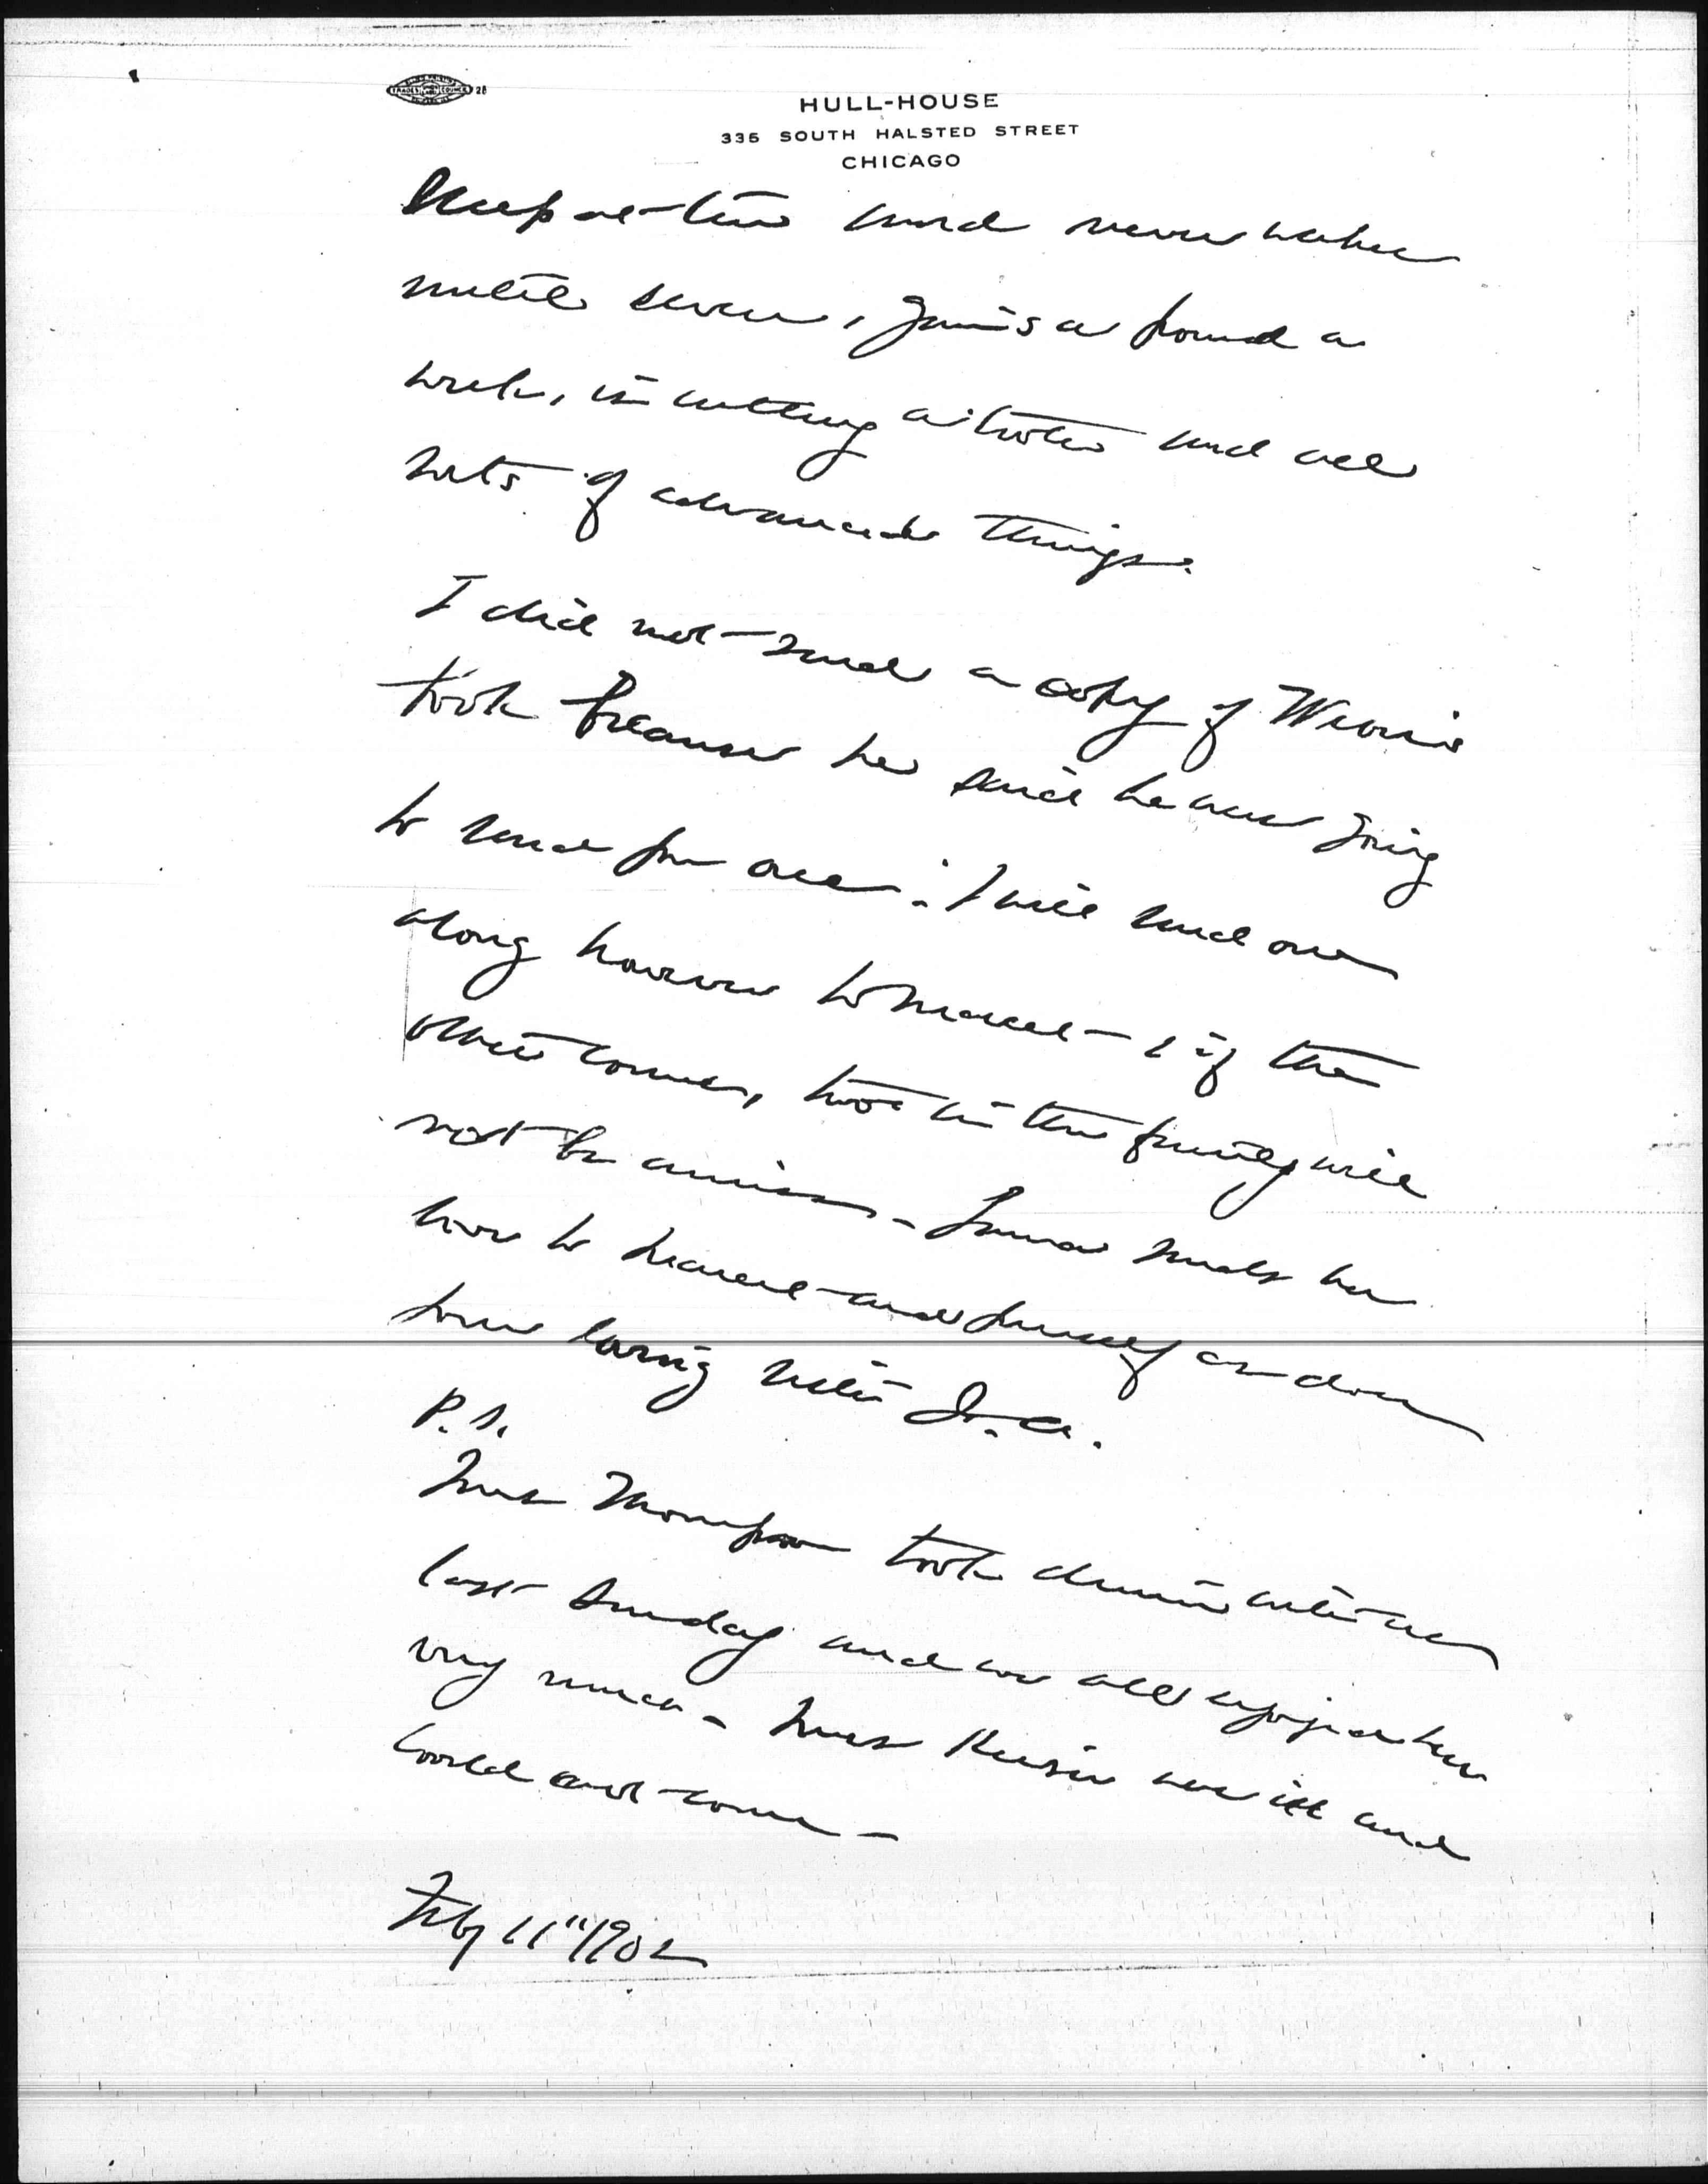 HULL-HOUSE
335 SOUTH HALSTED STREET
CHICAGO
sleep at ten and never wakes
until seven, gains a pound a
week, is cutting a tooth and all
sorts of advanced things.
I did not send a copy of
book because he said he was going
to send for one. I will send one
along however to & if the
other comes, two in the family will
not be amiss. sends her
love to and as does
your loving sister J. A.
P.S.
Miss Thompson took dinner with us
last Sunday and we all enjoyed her
very much - Miss was ill and
could not come -
Feby 11" 1902